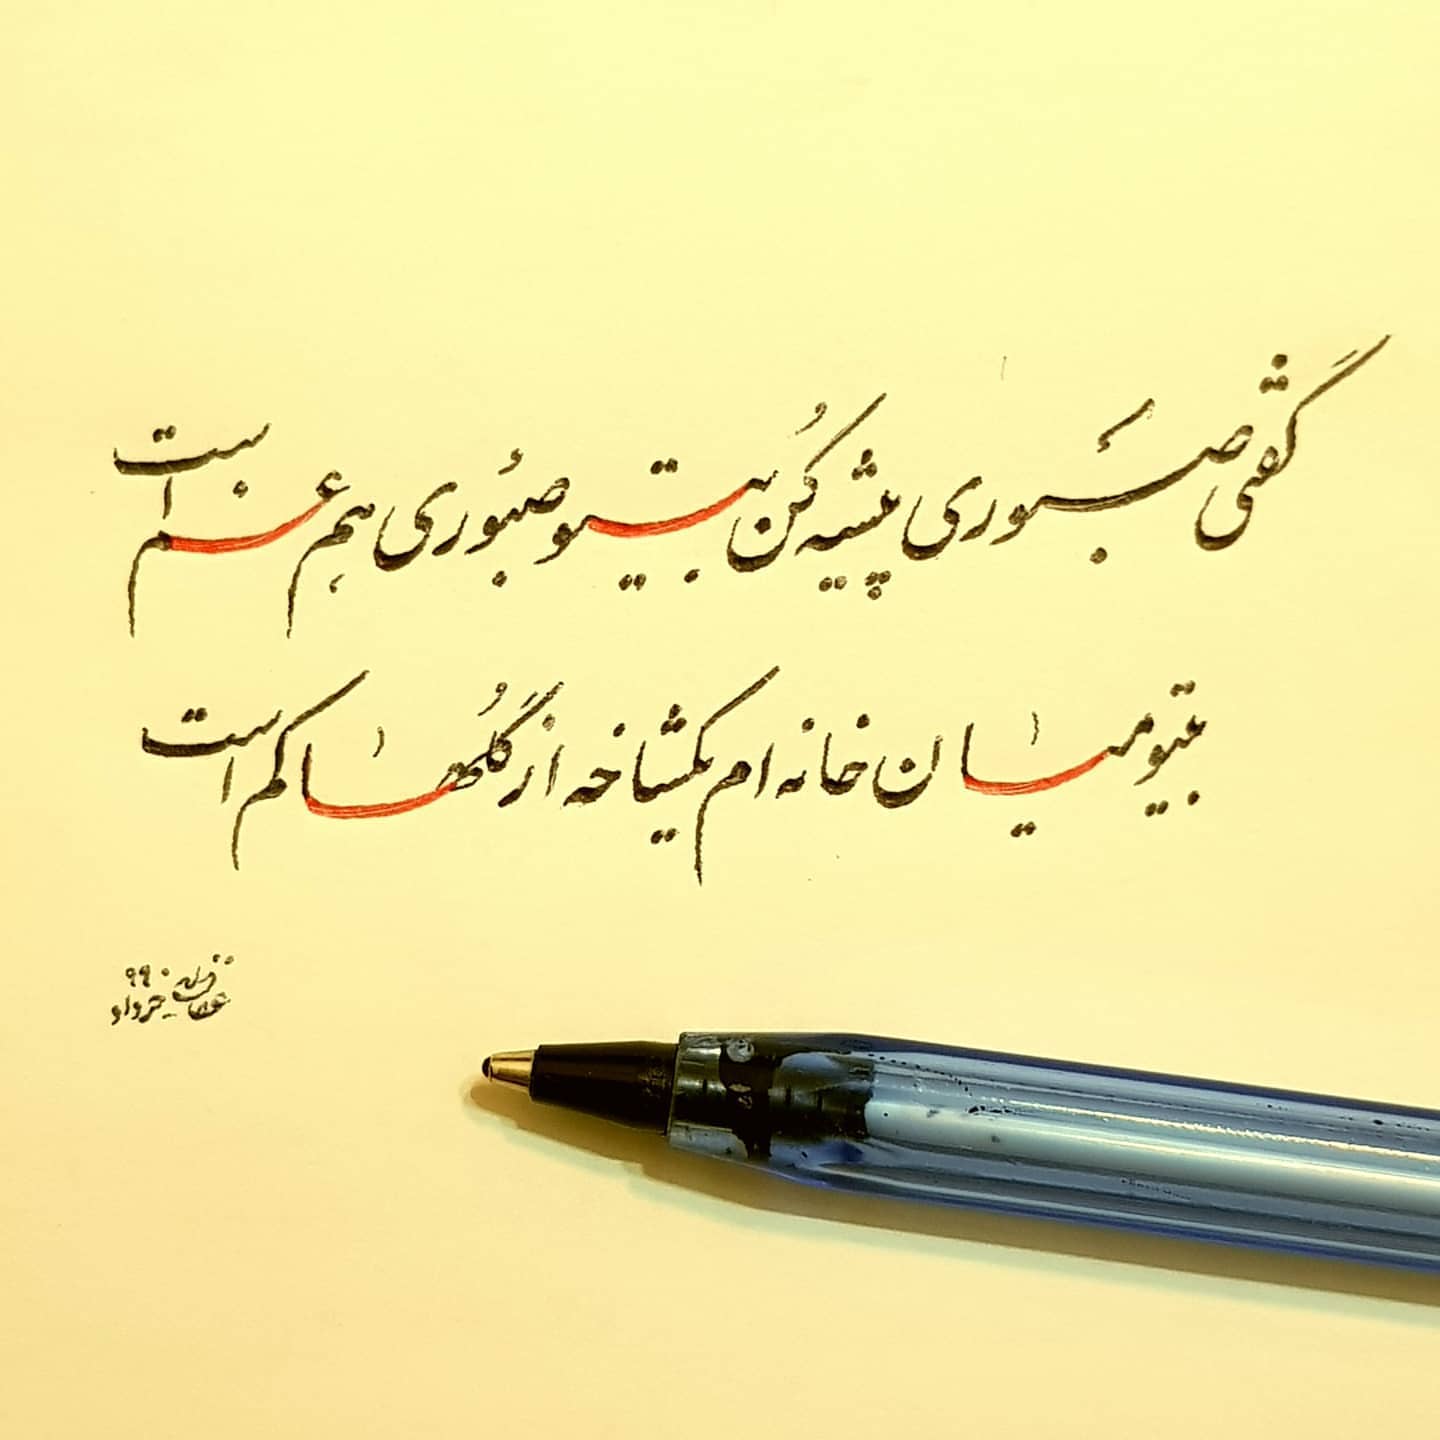 گفتی صبوری پیشه کن بیتو صبوری هم غم است
بیتو میان خانه ام یکشاخه از گلها کم است
۹۹۰
خرداد